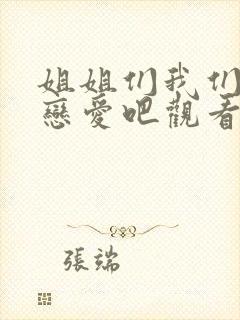 姐姐们我们
戀愛吧觀看
張端